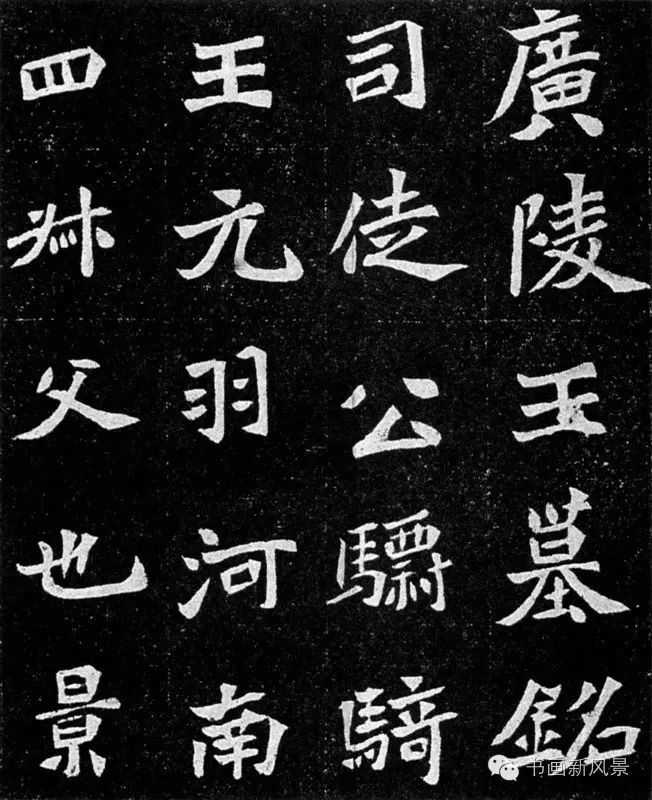 廣陵王墓銘
司徒公驃騎
王元羽河南
四叔父也景
书画新风景